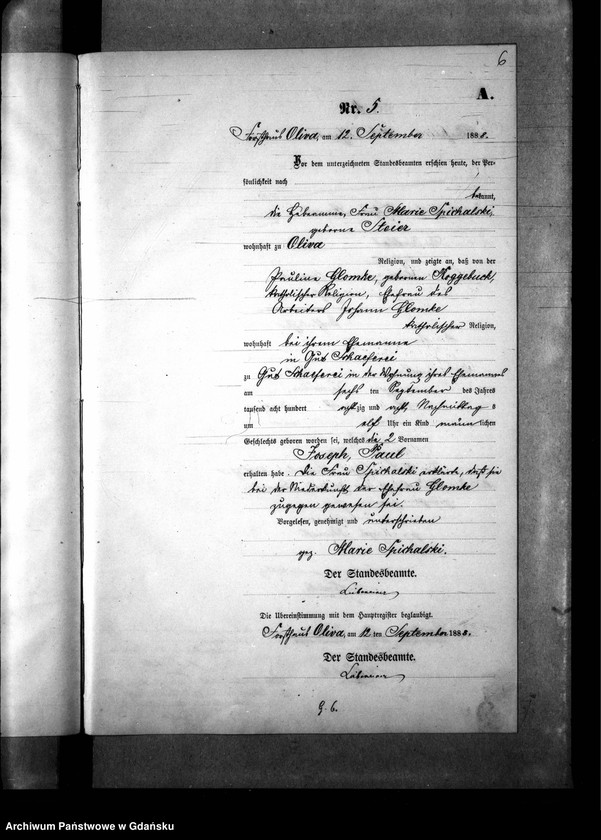 6
A.
Nr. 5.
Forsthaus Oliva, am 12. September 1888.
Vor dem unterzeichneten Standesbeamten erschien heute, der Per-
sönlichkeit nach
bekannt,
die Hebeamme, Frau Marie Spichalski,
geborne Steier
wohnhaft zu Oliva
Religion, und zeigte an, daß von der
Pauline Glomke, gebornen Koggebuck,
katholischer Religion, Ehefrau des
Arbeiters Johann Glomke
katholischer Religion,
wohnhaft bei ihrem Ehemanne
in Gut Schaeferei
zu Gut Schaeferei in der Wohnung ihres Ehemannes
am sechs ten September des Jahres
tausend acht hundert achtzig und acht, Nachmittags
um elf Uhr ein Kind männlichen
Geschlechts geboren worden sei, welches die 2 Vornamen
Joseph, Paul
erhalten habe. Die Frau Spichalski erklärte, daß sie
bei der Niederkunft der Ehefrau Glomke
zugegen gewesen sei.
Vorgelesen, genehmigt und unterschrieben
gez. Marie Spichalski.
Der Standesbeamte.
Die Übereinstimmung mit dem Hauptregister beglaubigt.
Forsthaus Oliva, am 12 ten September 1888.
Der Standesbeamte.
G. 6.
Archiwum Państwowe w Gdańsku